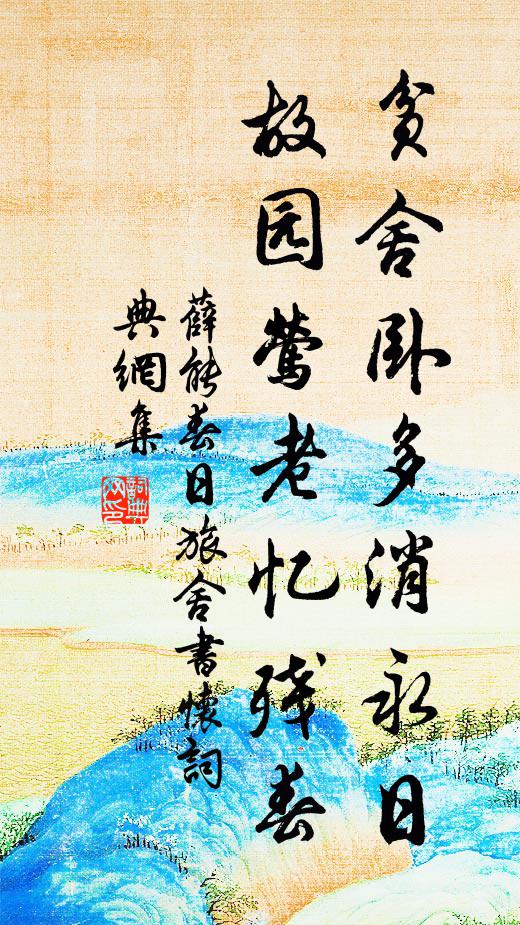 贫舍卧多消永日
故园莺老忆残春
薛能春日旅舍書懷詞
典網集
詞典